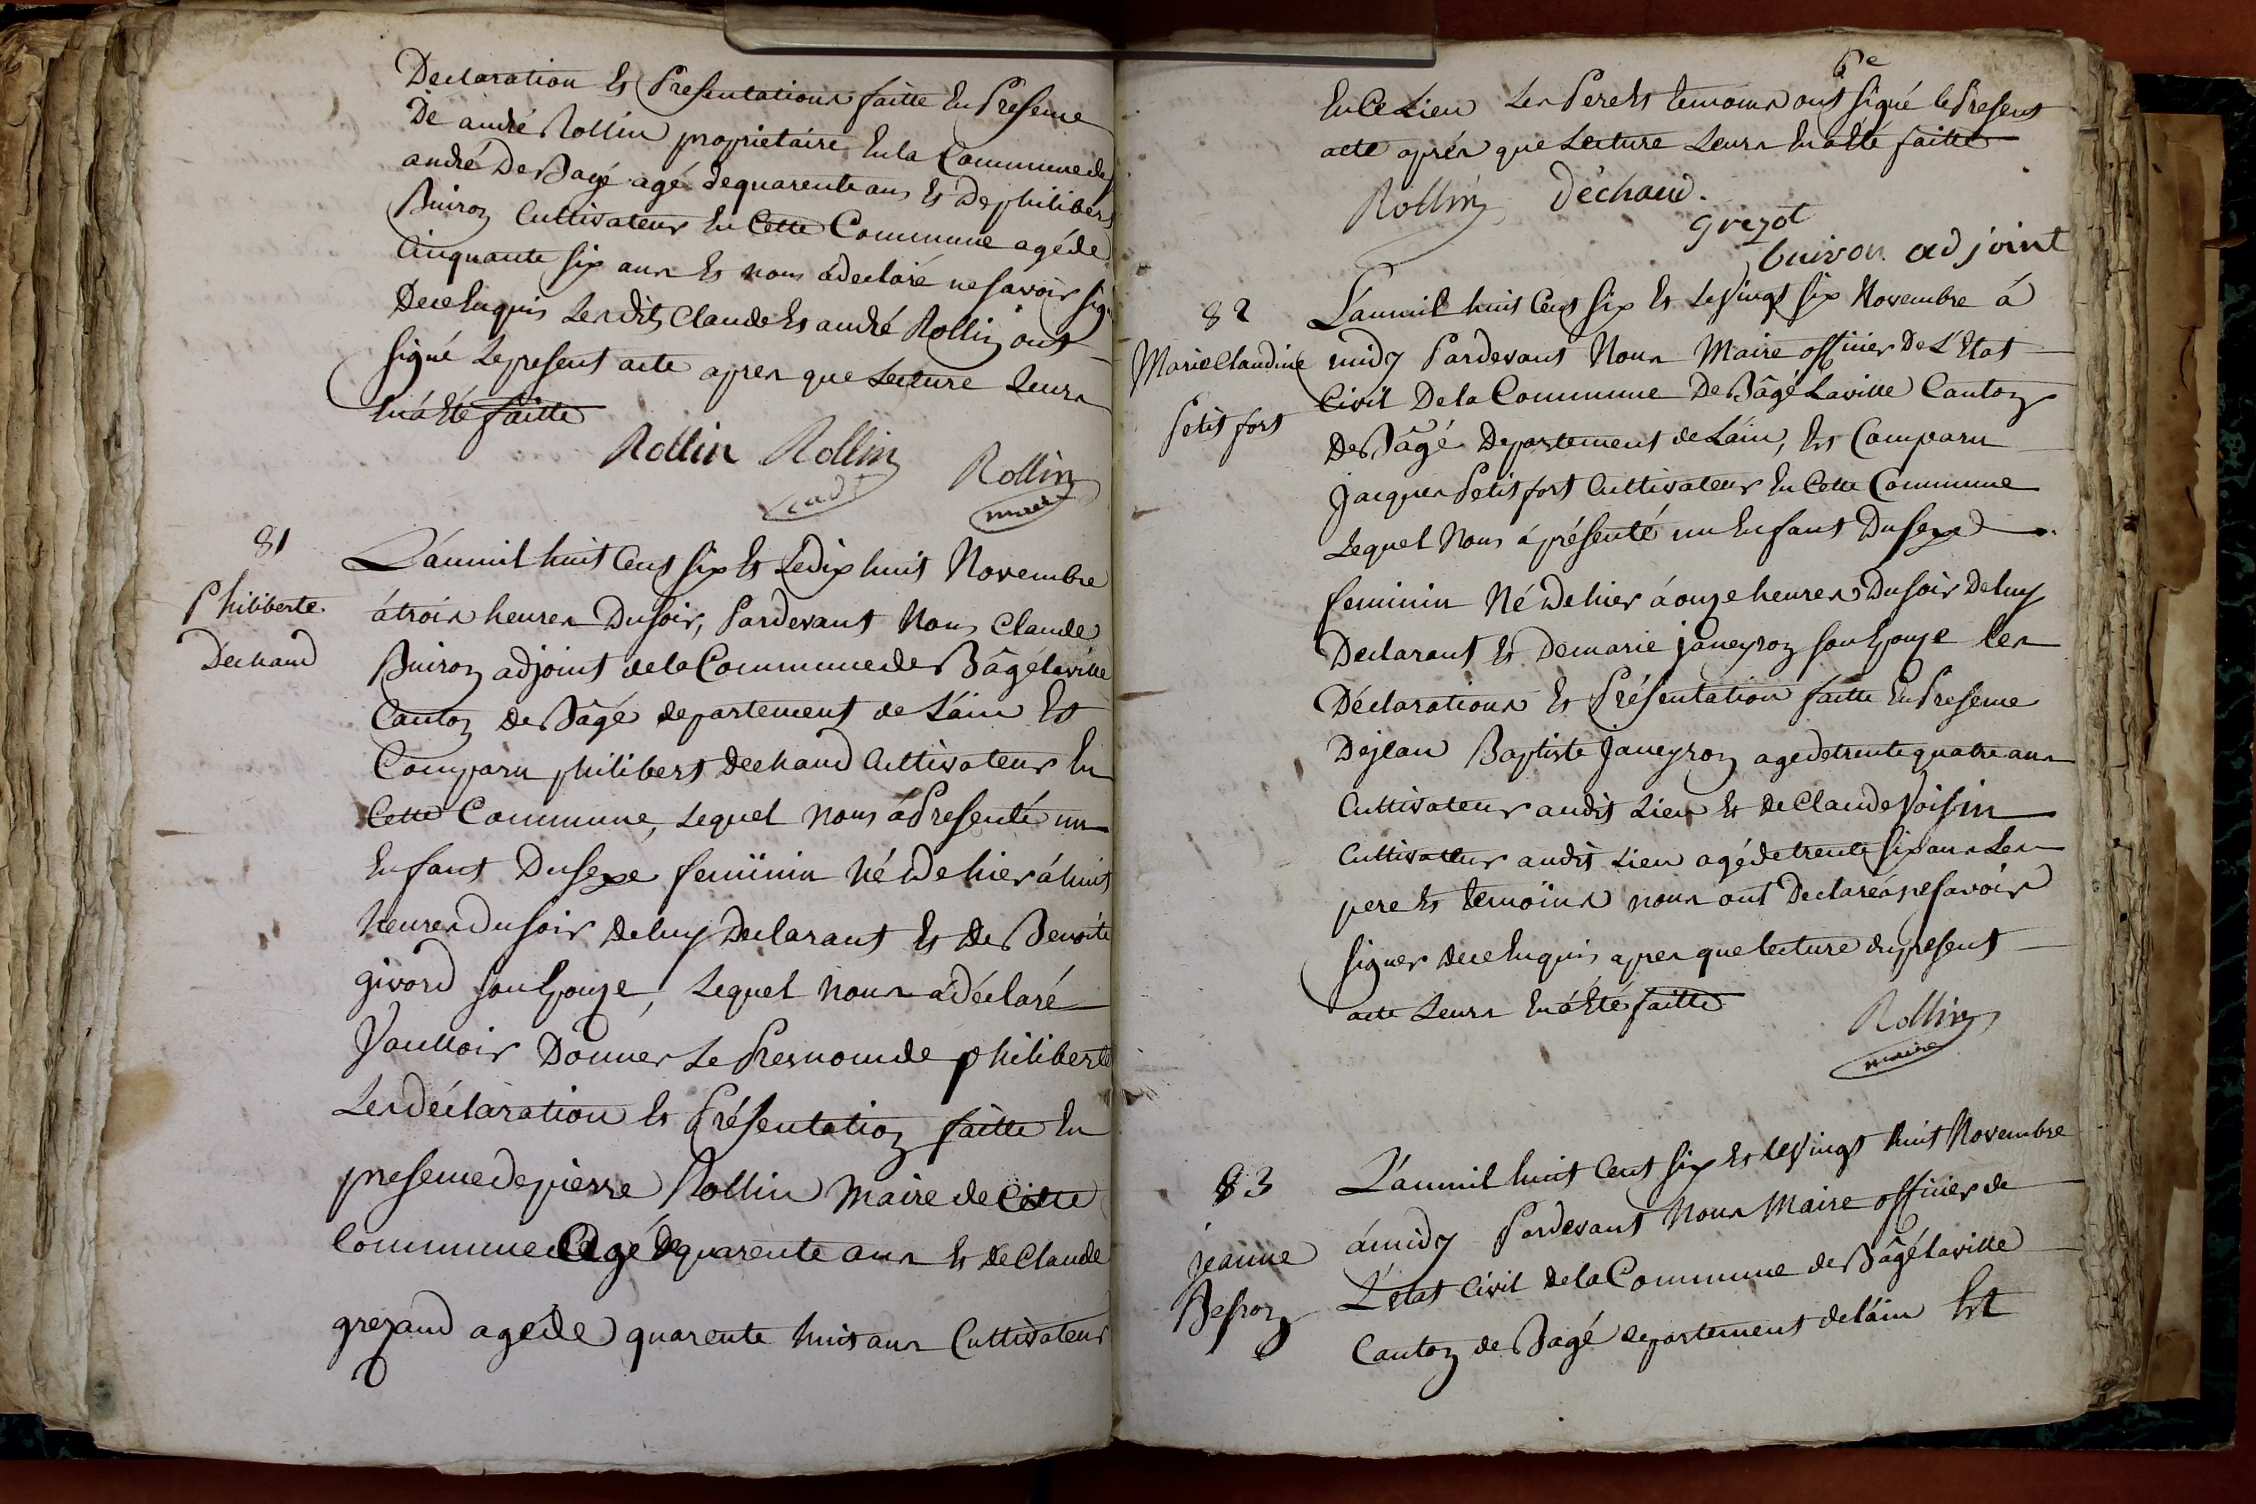 Declaration Et Presentations faitte En Presence
De andré Rollin propriétaire En la Commune de
andré De Bagé agé de quarente ans Et De philibert
Buiron Cultivateur En Cette Commune agé de
Cinquante six ans Et nous á declaré ne savoir sig
De ce Enquis Les dits Claude Et andré Rollin ont
signé Le present acte apres que Lecture Leurs
En á Eté faitte
Rollin Rollin Rollin
maire
81
Philiberte
Déchaud
L'an mil huit Cent six Et Le dix huit Novembre
á trois heures Du soir, Pardevant Nous Claude
Buiron adjoint de la Commune de Bâgé laville
Canton De Bâgé departement de L'ain Et
Comparu philibert Dechaud Cultivateur En
Cette Commune, Lequel Nous á Presenté un
Enfant Du sexe feminin Né De hier á huit
heures Du soir De luy Declarant Et De Benoite
givord son Epouze, Lequel Nous á déclaré
Vaulloir Donner Le Presnom de philiberte
Les déclaration Et Présentation faitte En
presence de pierre Rollin Maire de Cette
Commune agé De quarente ans Et De Claude
grezaud agé de quarente huit ans Cultivateur
6e
En Ce Lieu Les Pere Et temoins ont signé le Present
acte aprés que Lecture Leurs En á Eté faitte
Rollin Déchaud.
grezot
buiron adjoint
82
Marie Claudine
Petit fort
L'an mil huit Cent six Et Le Vingt six Novembre á
midy Pardevant Nous Maire officier De L'Etat
Civil De la Commune De Bâgé Laville Canton
De Bâgé Departement de L'ain, Est Comparu
Jacques Petit fort Cultivateur En Cette Commune
Lequel Nous á présenté un Enfant Du sexe
feminin Né De hier á onze heures Du soir De luy
Declarant Et De marie janeyron son Epouze les
Déclarations Et Présentation faitte En Presence
De jean Baptiste Janeyron agé de trente quatre ans
Cultivateur audit Lieu Et de Claude Voisin
Cultivateur audit Lieu agé de trente six ans Les
pere Et temoins nous ont Declarés ne savoir
signer De ce Enquis apres que lecture du present
acte Leurs En á Eté faitte
Rollin
maire
83
jeanne
Besson
L'an mil huit Cent six Et le Vingt huit Novembre
á midy Pardevant Nous Maire officier de
L'etat Civil de la Commune de Bâgé laville
Canton de Bagé departement de l'ain Est